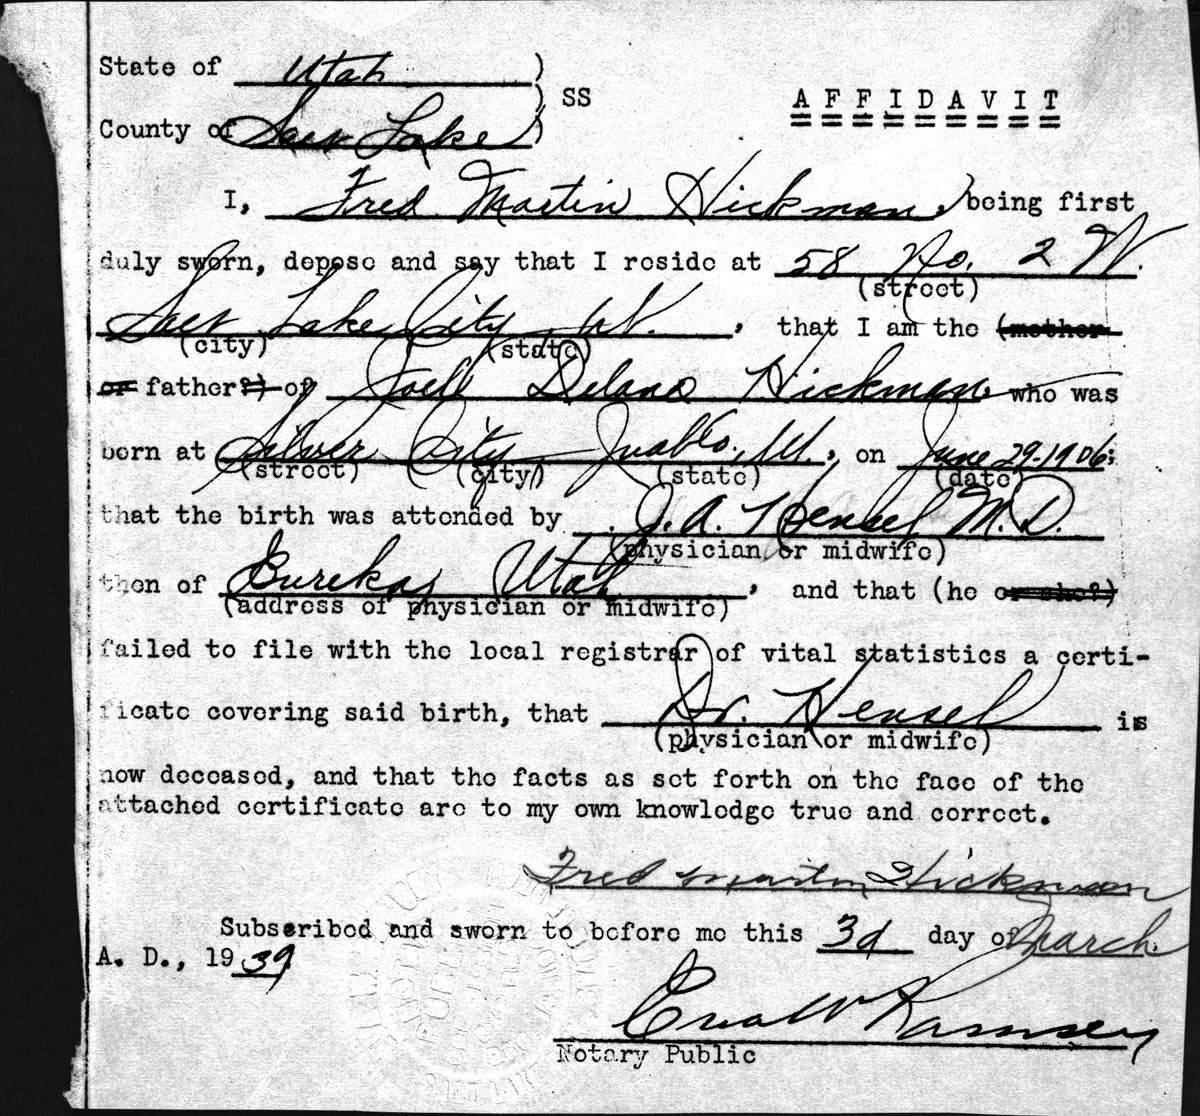 State of Utah )
County of Salt Lake ) SS
A F F I D A V I T
I, Fred Martin Hickman, being first
duly sworn, depose and say that I reside at 58 No. 2 W.
(street)
Salt Lake City Ut., that I am the (mother
(city) (state)
or father?) of Joell Delano Hickman, who was
born at Silver City Juab Co., Ut., on June 29-1906;
(street) (city) (state) (date)
that the birth was attended by J. A. Hensel M.D.
(physician or midwife)
then of Eureka, Utah, and that (he or she?)
(address of physician or midwife)
failed to file with the local registrar of vital statistics a certi-
ficate covering said birth, that Dr. Hensel is
(physician or midwife)
now deceased, and that the facts as set forth on the face of the
attached certificate are to my own knowledge true and correct.
Fred Martin Hickman
Subscribed and sworn to before me this 3d day of March.
A. D., 1939
Ramsey
Notary Public